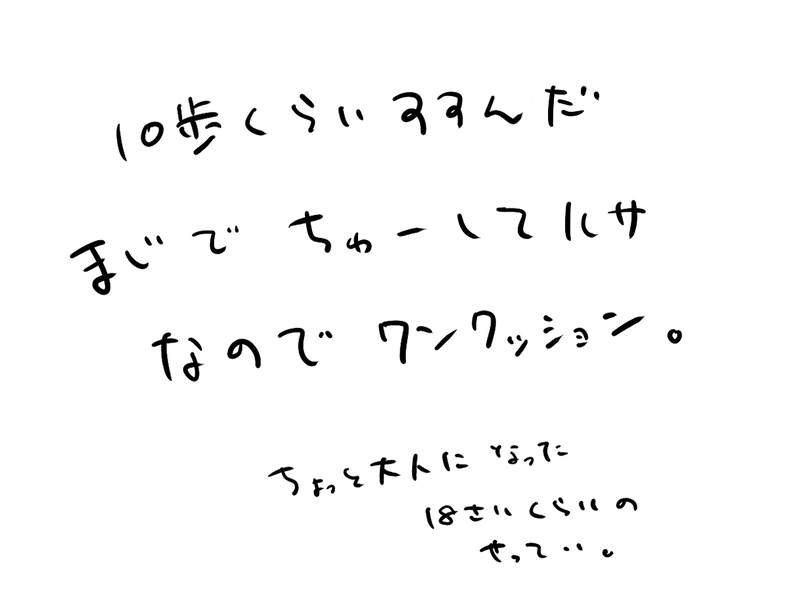 10歩くらいすすんだ
まじでちゅーしてルサ
なのでワンクッション。
ちょっと大人になった
18さいくらいの
せってい。